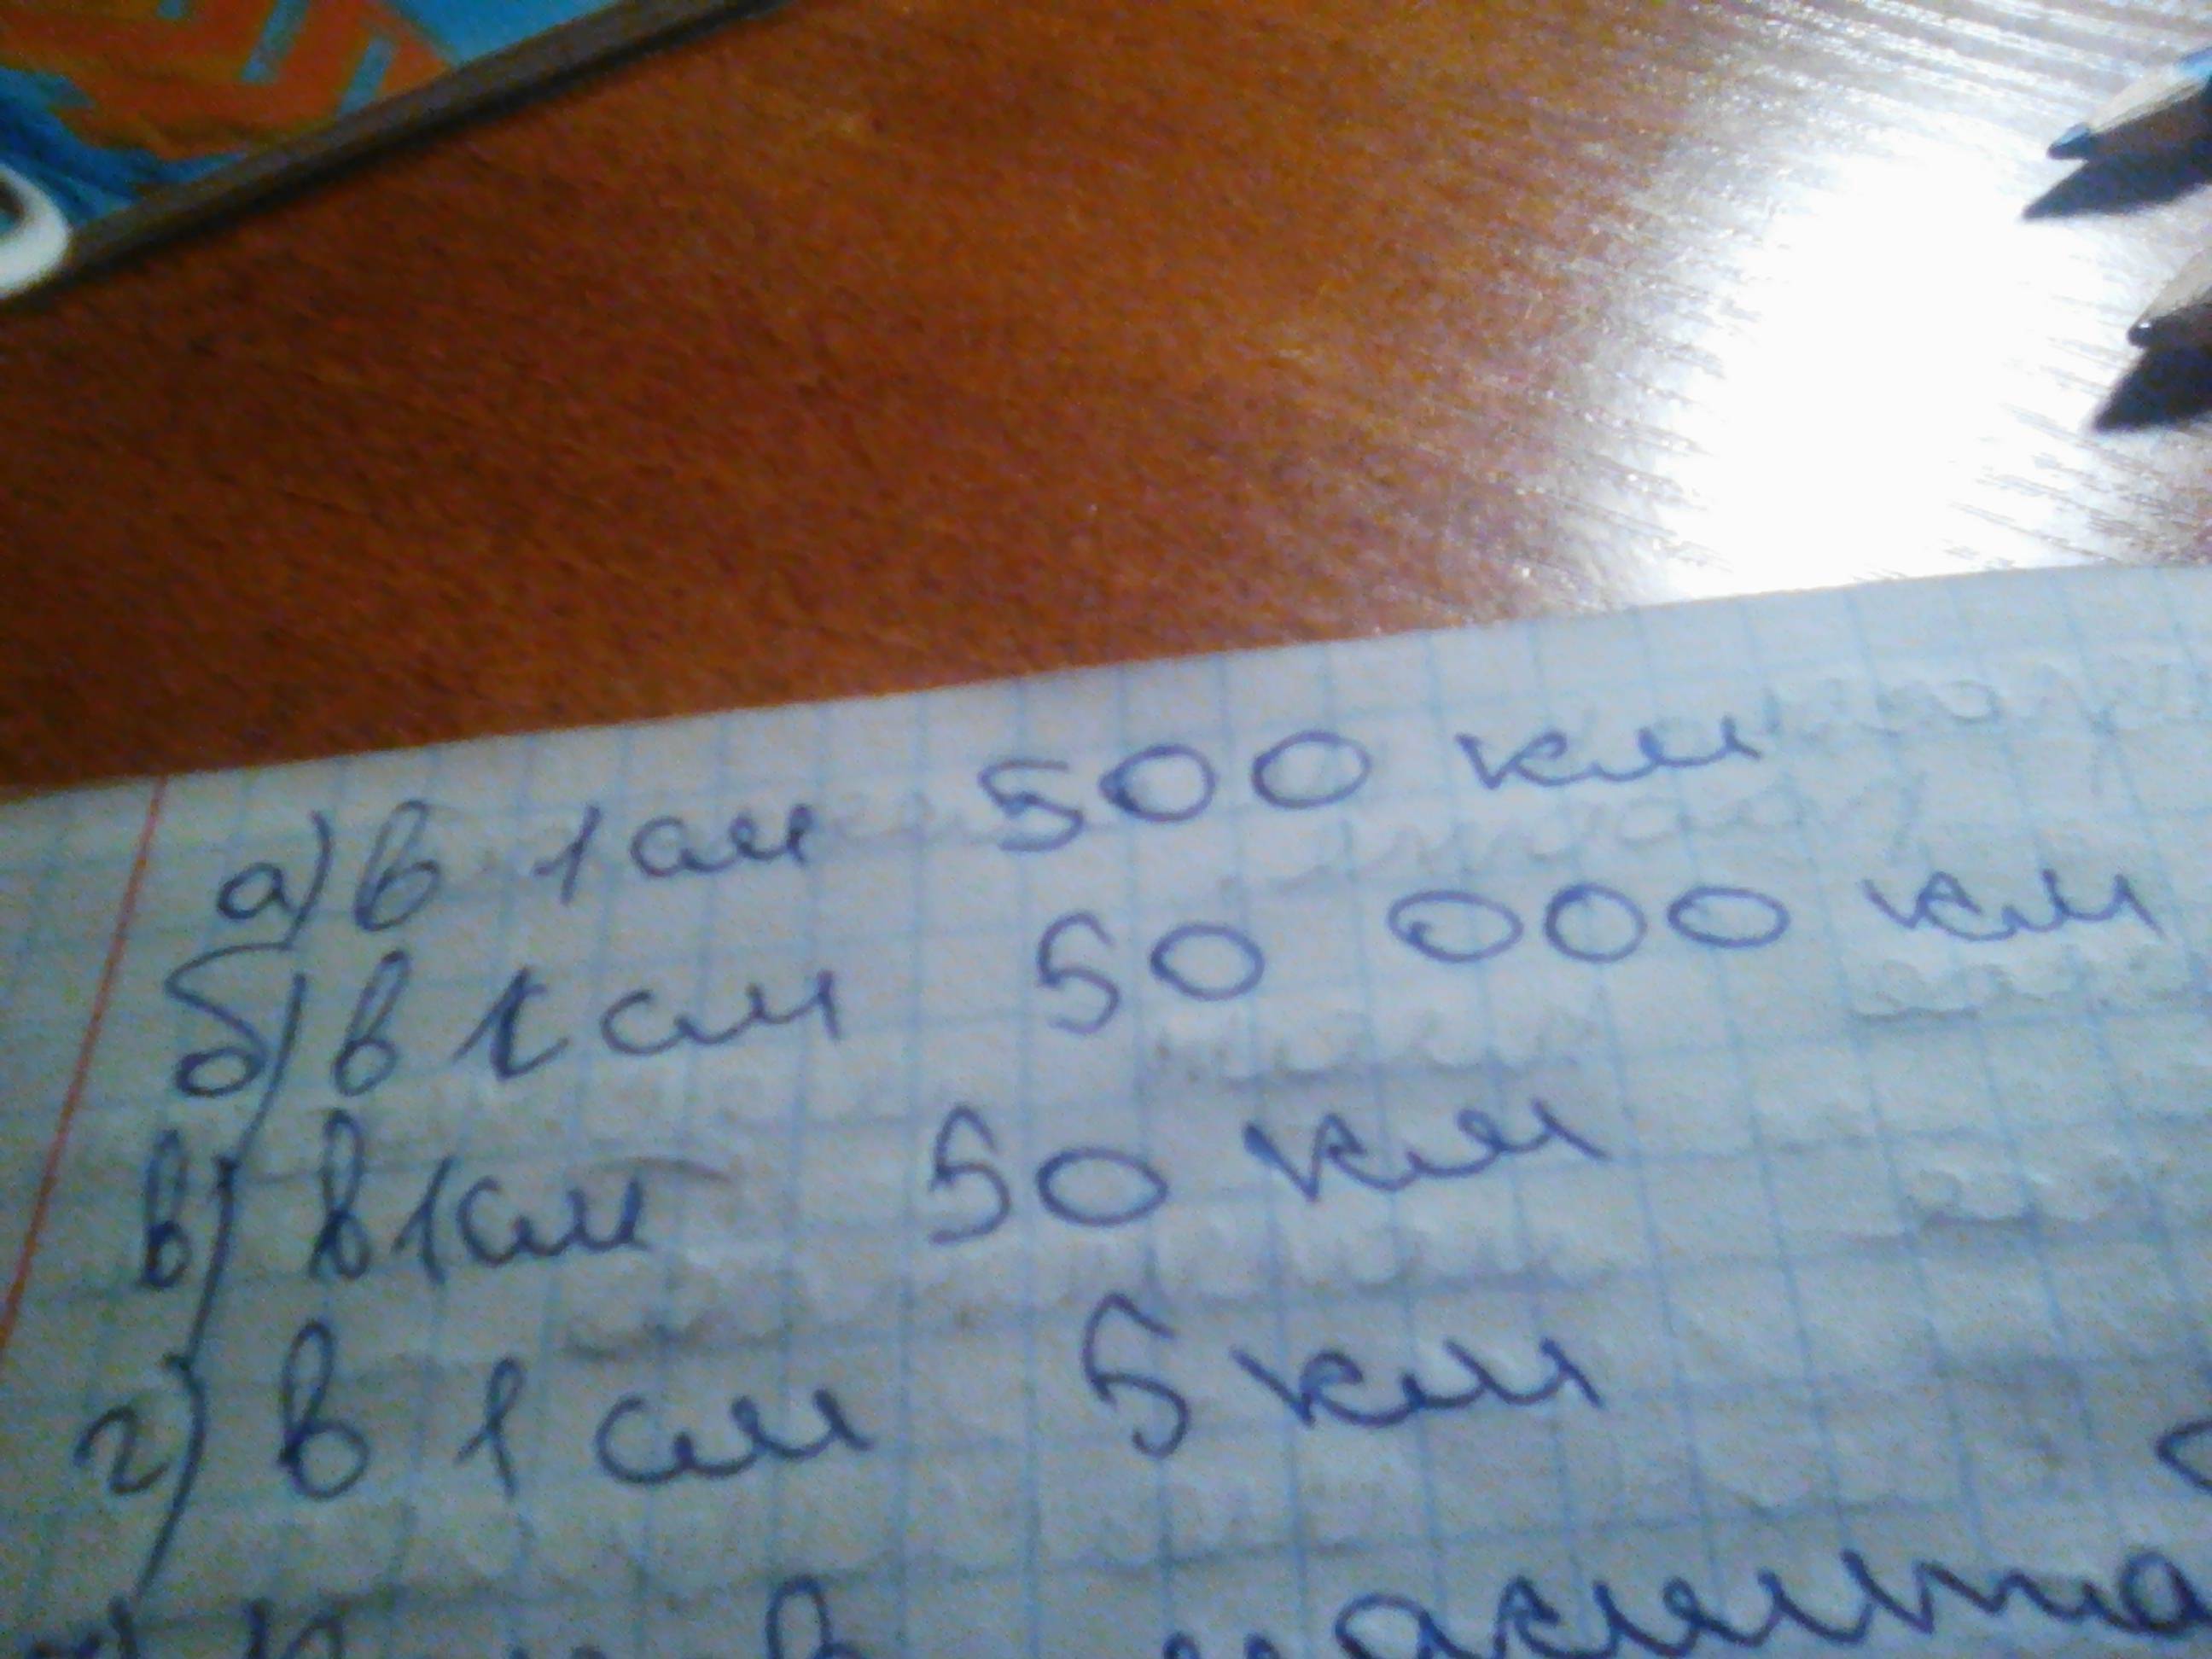 а) в 1 см 500 км
б) в 1 см 50 000 км
в) в 1 см 50 км
г) в 1 см 5 км